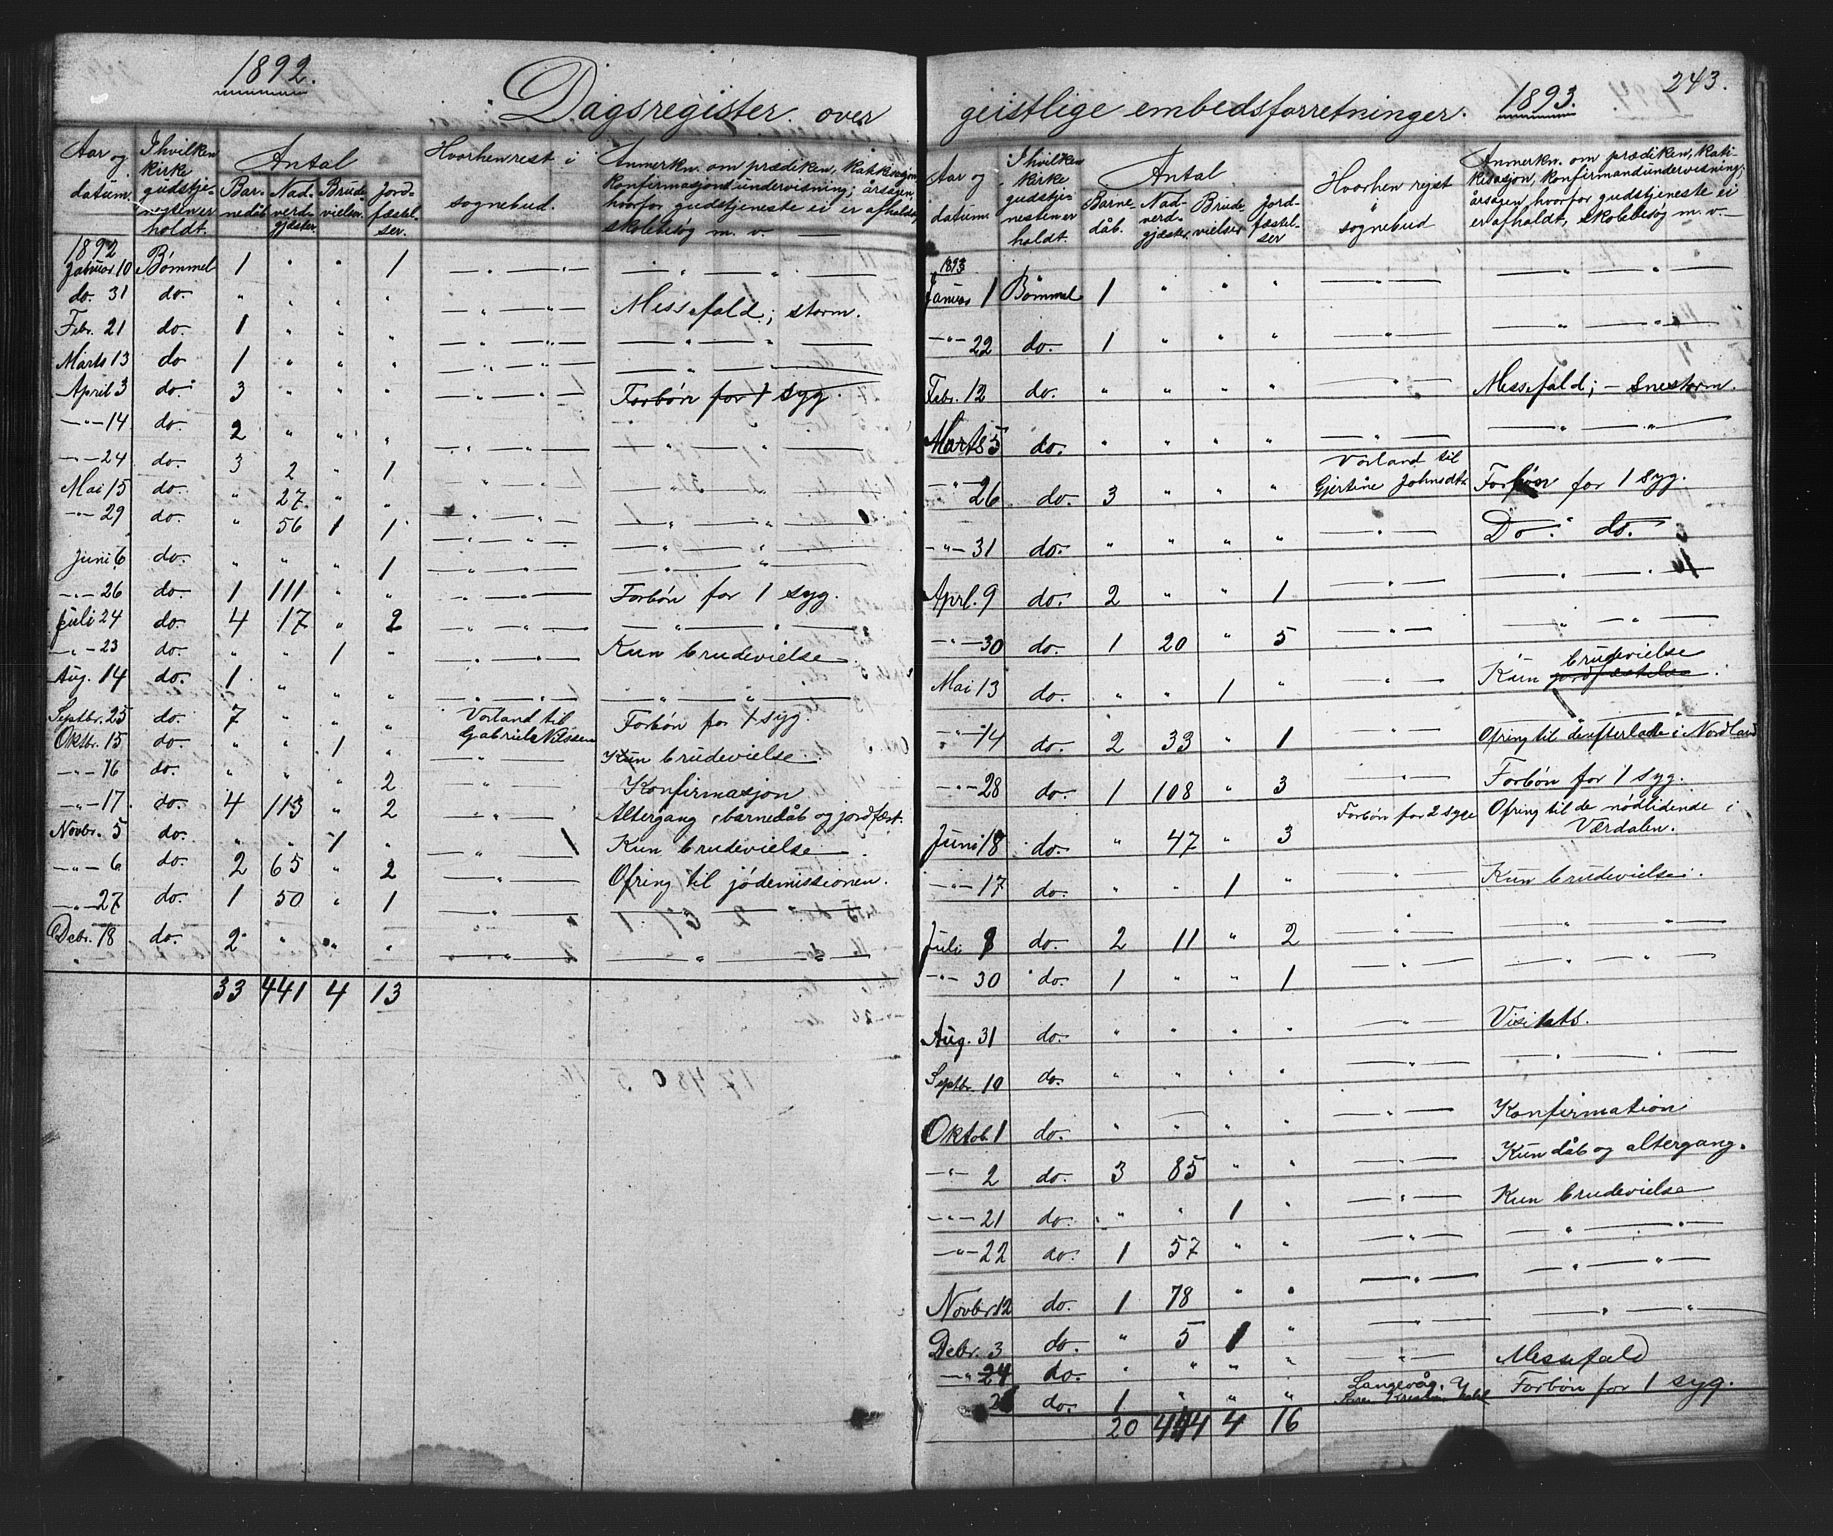 1892.
Dagsregister over
Aar og datum.
I hvilken kirke gudstje-nesten er holdt.
Antal
Bar-nedåb
Nad-verd-gjæster
Brude vielser
Jord-fæstel-ser.
Hvorhen rest i sognebud.
Anmerkn. om prædiken, katikisasjon, konfirmasjonsundervisning; årsagen, hvorfor gudstjeneste ei er afholdt, skolebesøg m. v.
1892
Januar 10 Bømmel 1 " " 1 — " — " —
do. 31 do. " " " " — " — Messefald; storm.
Febr. 21 do. 1 " " " — " —
Marts 13 do 1 " " " — " —
April 3 do. 3 " " " — " — Forbøn for 1 syg.
—"— 14 do. 2 " " " — " —
—"— 24 do. 3 2 " 1 — " —
Mai 15 do. " 27 " " — " —
—"— 29 do. " 56 1 1 — " —
Juni 6 do. " " " 1 — " —
—"— 26 do. 1 111 " " — " — Forbøn for 1 syg.
Juli 24 do. 4 17 " 2 — " —
—"— 23 do. " " 1 " — " — Kun brudevielse
Aug. 14 do. 1 " " " — " —
Septbr. 25 do. 7 " " " Vorland til Gabriel Nilssen Forbøn for 1 syg.
Oktbr. 15 do. " " 1 " — " — Kun brudevielse.
—"— 16 do. " " " 2 — " — Konfirmasjon
—"— 17 do. 4 113 " 2 — " — Altergang, barnedåb og jordfæst.
Novbr. 5 do. " " 1 " — " — Kun brudevielse
—"— 6 do. 2 65 " 2 — " — Ofring til jødemissionen.
—"— 27 do. 1 50 " 1 — " —
Debr. 18 do. 2 " " " — " —
33 441 4 13
geistlige embedsforretninger.
1893.
243.
Aar og datum.
I hvilken kirke gudstje-nesten er holdt.
Antal
Barne dåb.
Nad-verd-gjæster
Brude vielser
Jord-fæstel-ser
Hvorhen rejst i sognebud
Anmerkn. om prædiken, kati-kisasjon, konfirmandundervisning; årsagen, hvorfor gudstjeneste ei er afholdt, skolebesøg m. v.
1893
Januar 1 Bømmel 1 " " " — " —
—"— 22 do. 1 " " " — " —
Febr. 12 do. " " " " — " — Messefald; — snestorm.
Marts 5 do. " " " " — " —
—"— 26 do. 3 " " " Vorland til Gjertine Johnsdt. Forbøn for 1 syg.
—"— 31 do. " " " " — " — Do. do.
Aprl. 9 do. 2 " " 1 — " —
—"— 30 do. 1 20 " 5 — " —
Mai 13 do. " " 1 " — " — Kun jordfæstelse brudevielse.
—"— 14 do. 2 33 " 1 — " — Ofring til de efterladte i Nordland
—"— 28 do. 1 108 " 3 — " — Forbøn for 1 syg.
Juni 18 do. " 47 " 3 Forbøn for 2 syge Ofring til de nødlidende i Værdalen.
—"— 17 do. " " 1 " — " — Kun brudevielse.
Juli 9 do. 2 11 " 2 — " —
—"— 30 do. 1 " " 1 — " —
Aug. 31 do. " " " " — " — Visitats.
Septbr. 10 do. " " " " — " —
Oktob. 1 do. " " " " — " — Konfirmation
—"— 2 do. 3 85 " " — " — Kun dåb og altergang.
—"— 21 do. " " 1 " — " — Kun brudevielse
—"— 22 do. 1 57 " " — " —
Novbr 12 do. 1 78 " " — " —
Debr. 3 do. " 5 1 " — " —
—"— 24 do. " " " " — " — Messefald
do. 1 " " " Langevåg. Forbøn for 1 syg.
20 444 4 16